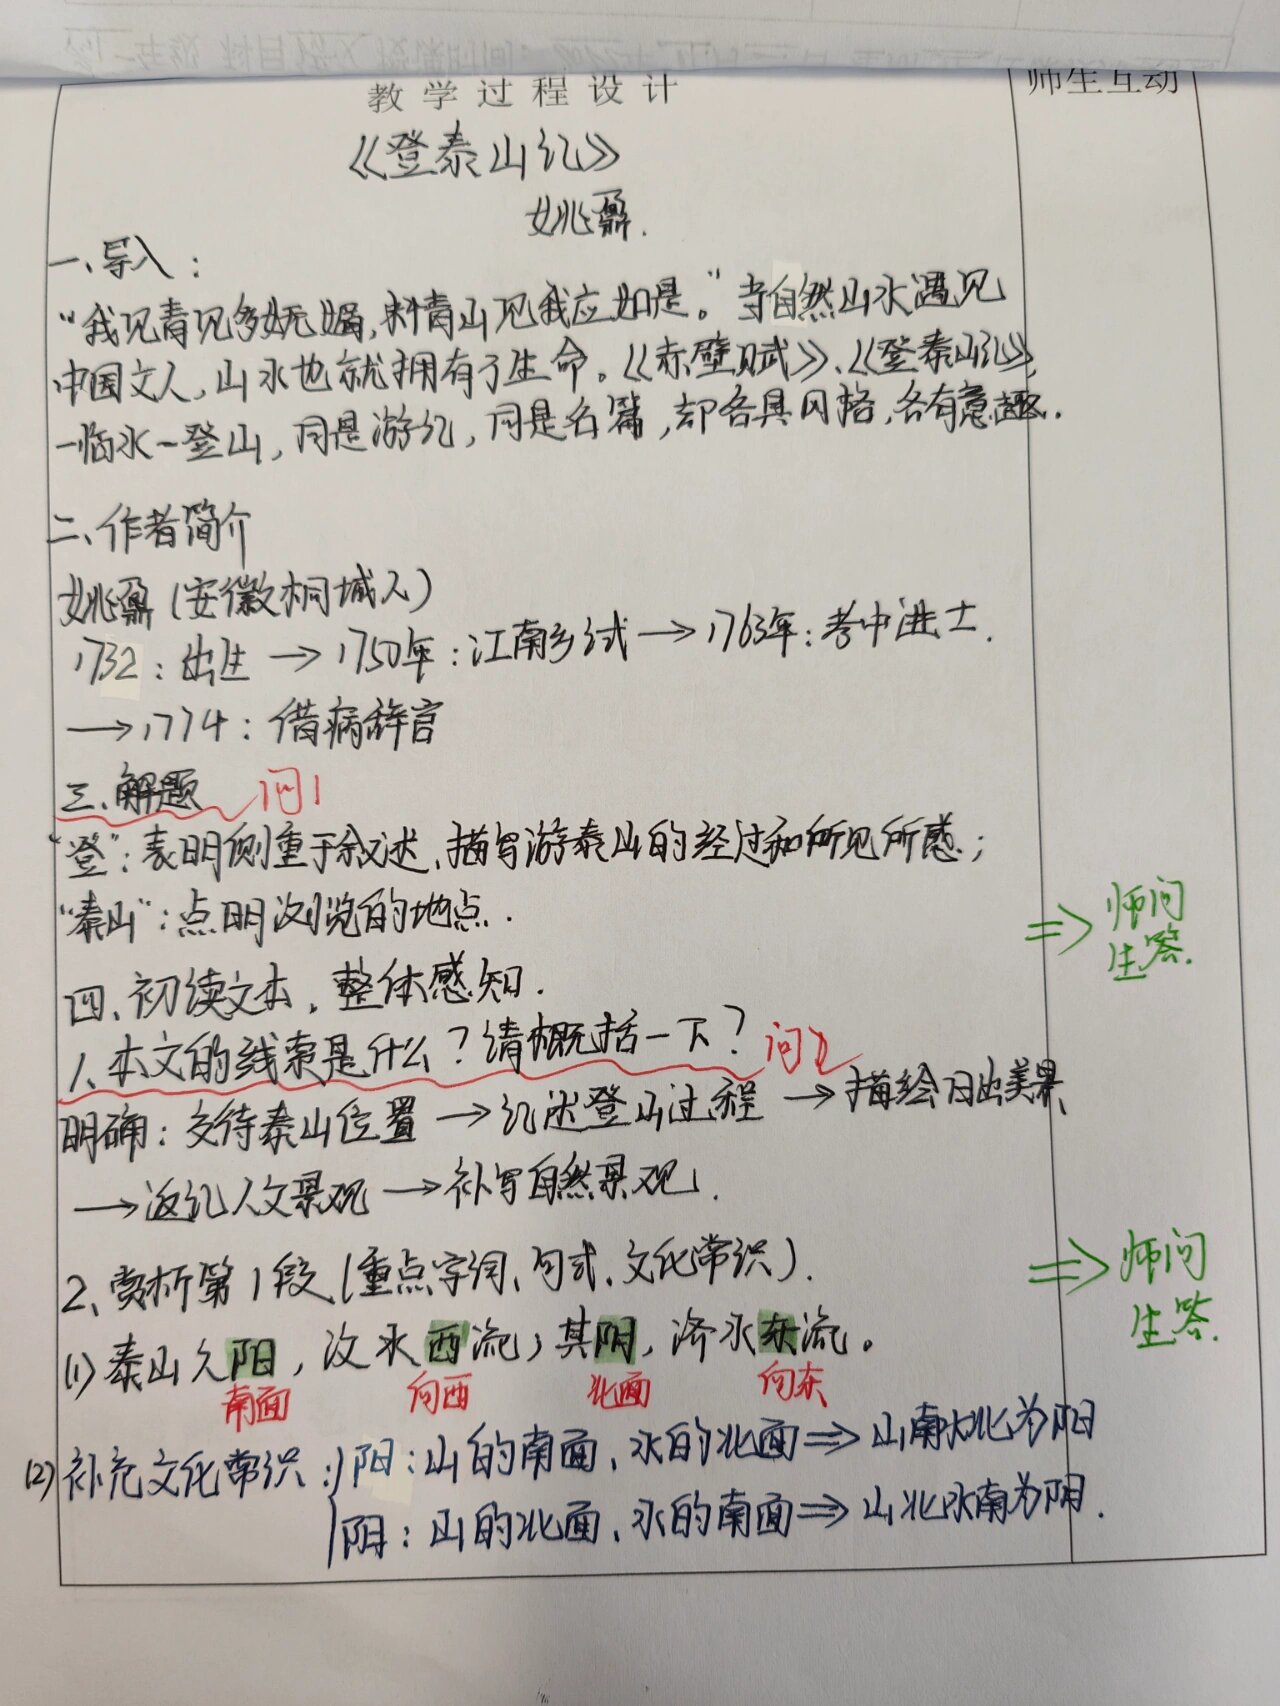 教学过程设计
师生互动
《登泰山记》
姚鼐.
一、导入：
“我见青见多妩媚,料青山见我应如是。”当自然山水遇见
中国文人,山水也就拥有了生命。《赤壁赋》、《登泰山记》,
一临水一登山,同是游记,同是名篇,却各具风格,各有意趣.
二、作者简介
姚鼐(安徽桐城人)
1732:出生→1750年:江南乡试→1763年:考中进士.
→1774:借病辞官
三、解题 问1
“登”:表明侧重于叙述、描写游泰山的经过和所见所感;
“泰山”:点明浏览的地点.
⇒师问
生答.
四、初读文本,整体感知.
1、本文的线索是什么?请概括一下? 问2
明确:交待泰山位置→记述登山过程→描绘日出美景
→返记人文景观→补写自然景观.
2、赏析第1段(重点字词、句式、文化常识).
⇒师问
生答.
(1)泰山之阳,汶水西流;其阴,济水东流。
南面 向西 北面 向东
(2)补充文化常识:阳:山的南面、水的北面⇒山南水北为阳
阴:山的北面、水的南面⇒山北水南为阴.